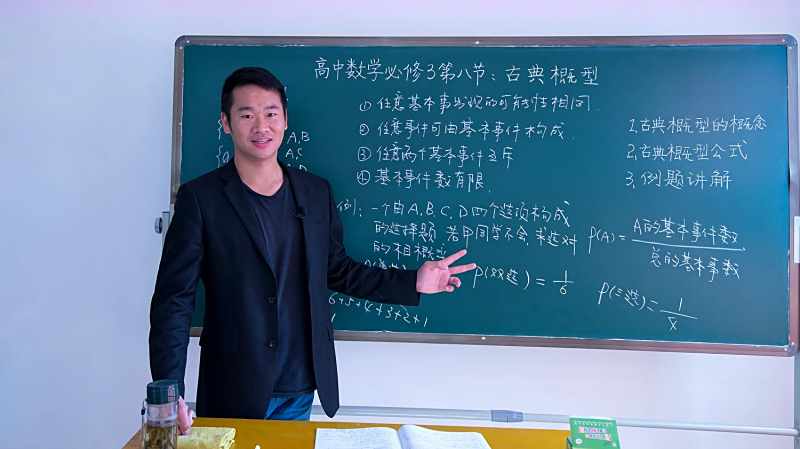 高中数学必修3第八节：古典概型
① 任意基本事件出现的可能性相同.
② 任意事件可由基本事件构成.
③ 任意两个基本事件互斥
④ 基本事件数有限.
A,B
A,C
例：一个由A.B.C.D四个选项构成
的选择题 若甲同学不会,求选对
的相概率
P(双选) = 1/6
6+5+4+3+2+1
1.古典概型的概念
2.古典概型公式
3.例题讲解
P(A) = A的基本事件数/总的基本事数
P(三选) = 1/